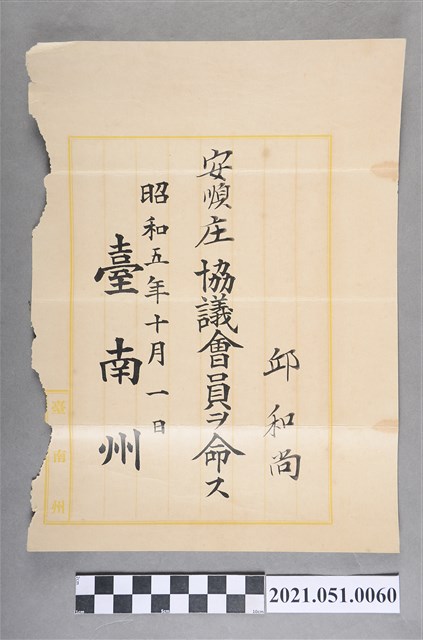 邱和尚
安順庄協議會員ヲ命ス
昭和五年十月一日
臺南州
臺南州
2021.051.0060